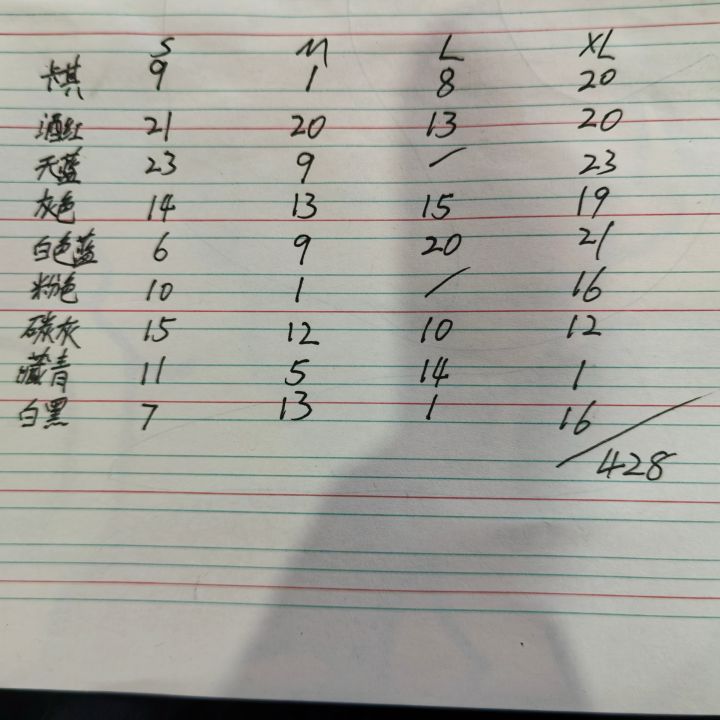 S M L XL
卡其 9 1 8 20
酒红 21 20 13 20
天蓝 23 9 / 23
灰色 14 13 15 19
白色蓝 6 9 20 21
粉色 10 1 / 16
碳灰 15 12 10 12
藏青 11 5 14 1
白黑 7 13 1 16
428